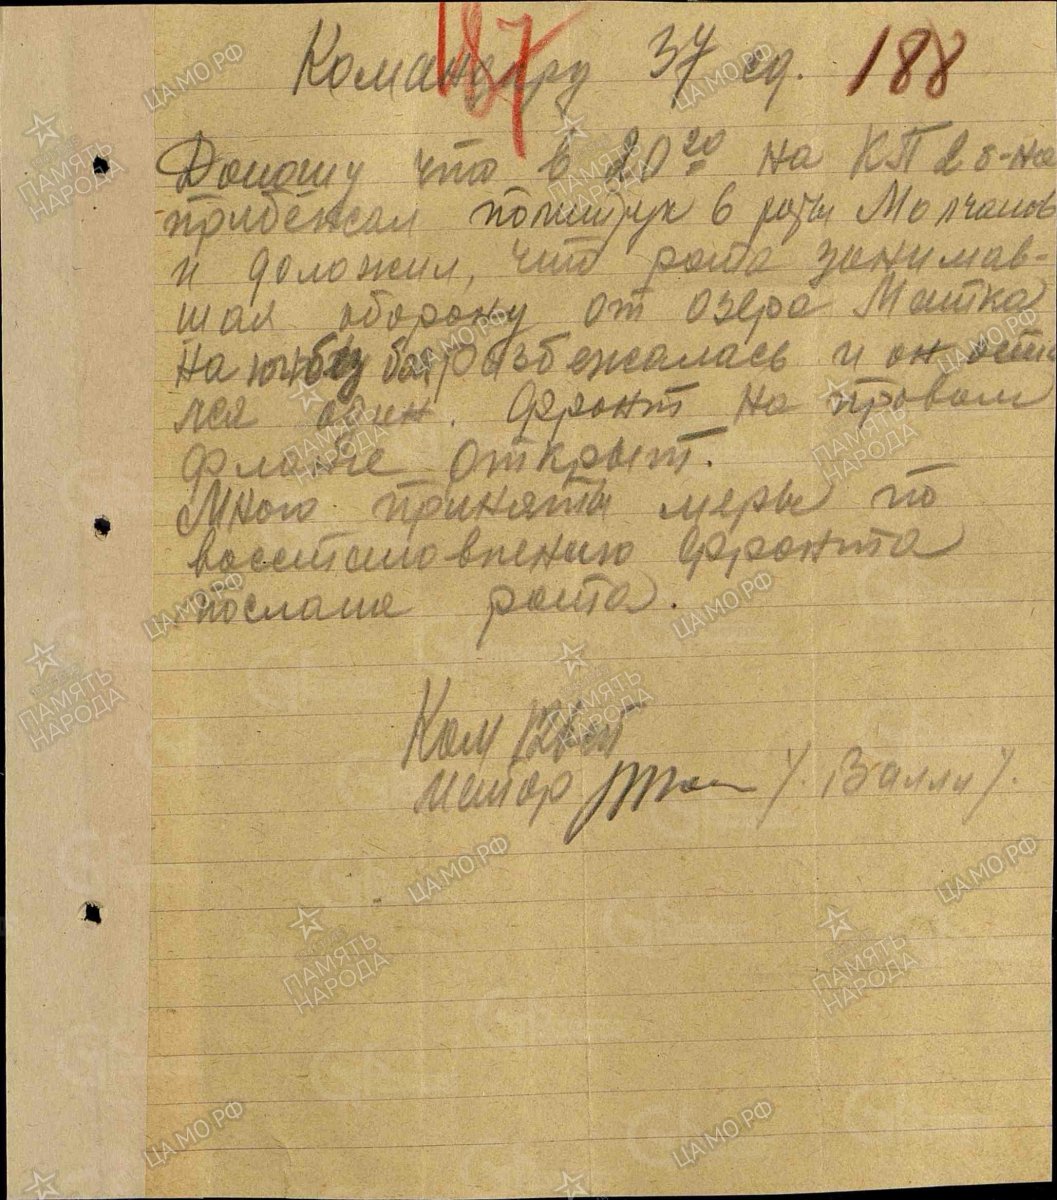 187
Командиру 37 сд. 188
Доношу что в 20 20 на КП 2 б-на
прибежал политрук 6 роты Молчанов
и доложил, что рота занимав-
шая оборону от озера Матка
на разбежалась и он оста
лся один. Фронт на правом
фланге открыт.
Мною приняты меры по
восстановлению фронта
послана рота.
Ком
майор /. Валли /.
ПАМЯТЬ НАРОДА
ЦАМО.РФ